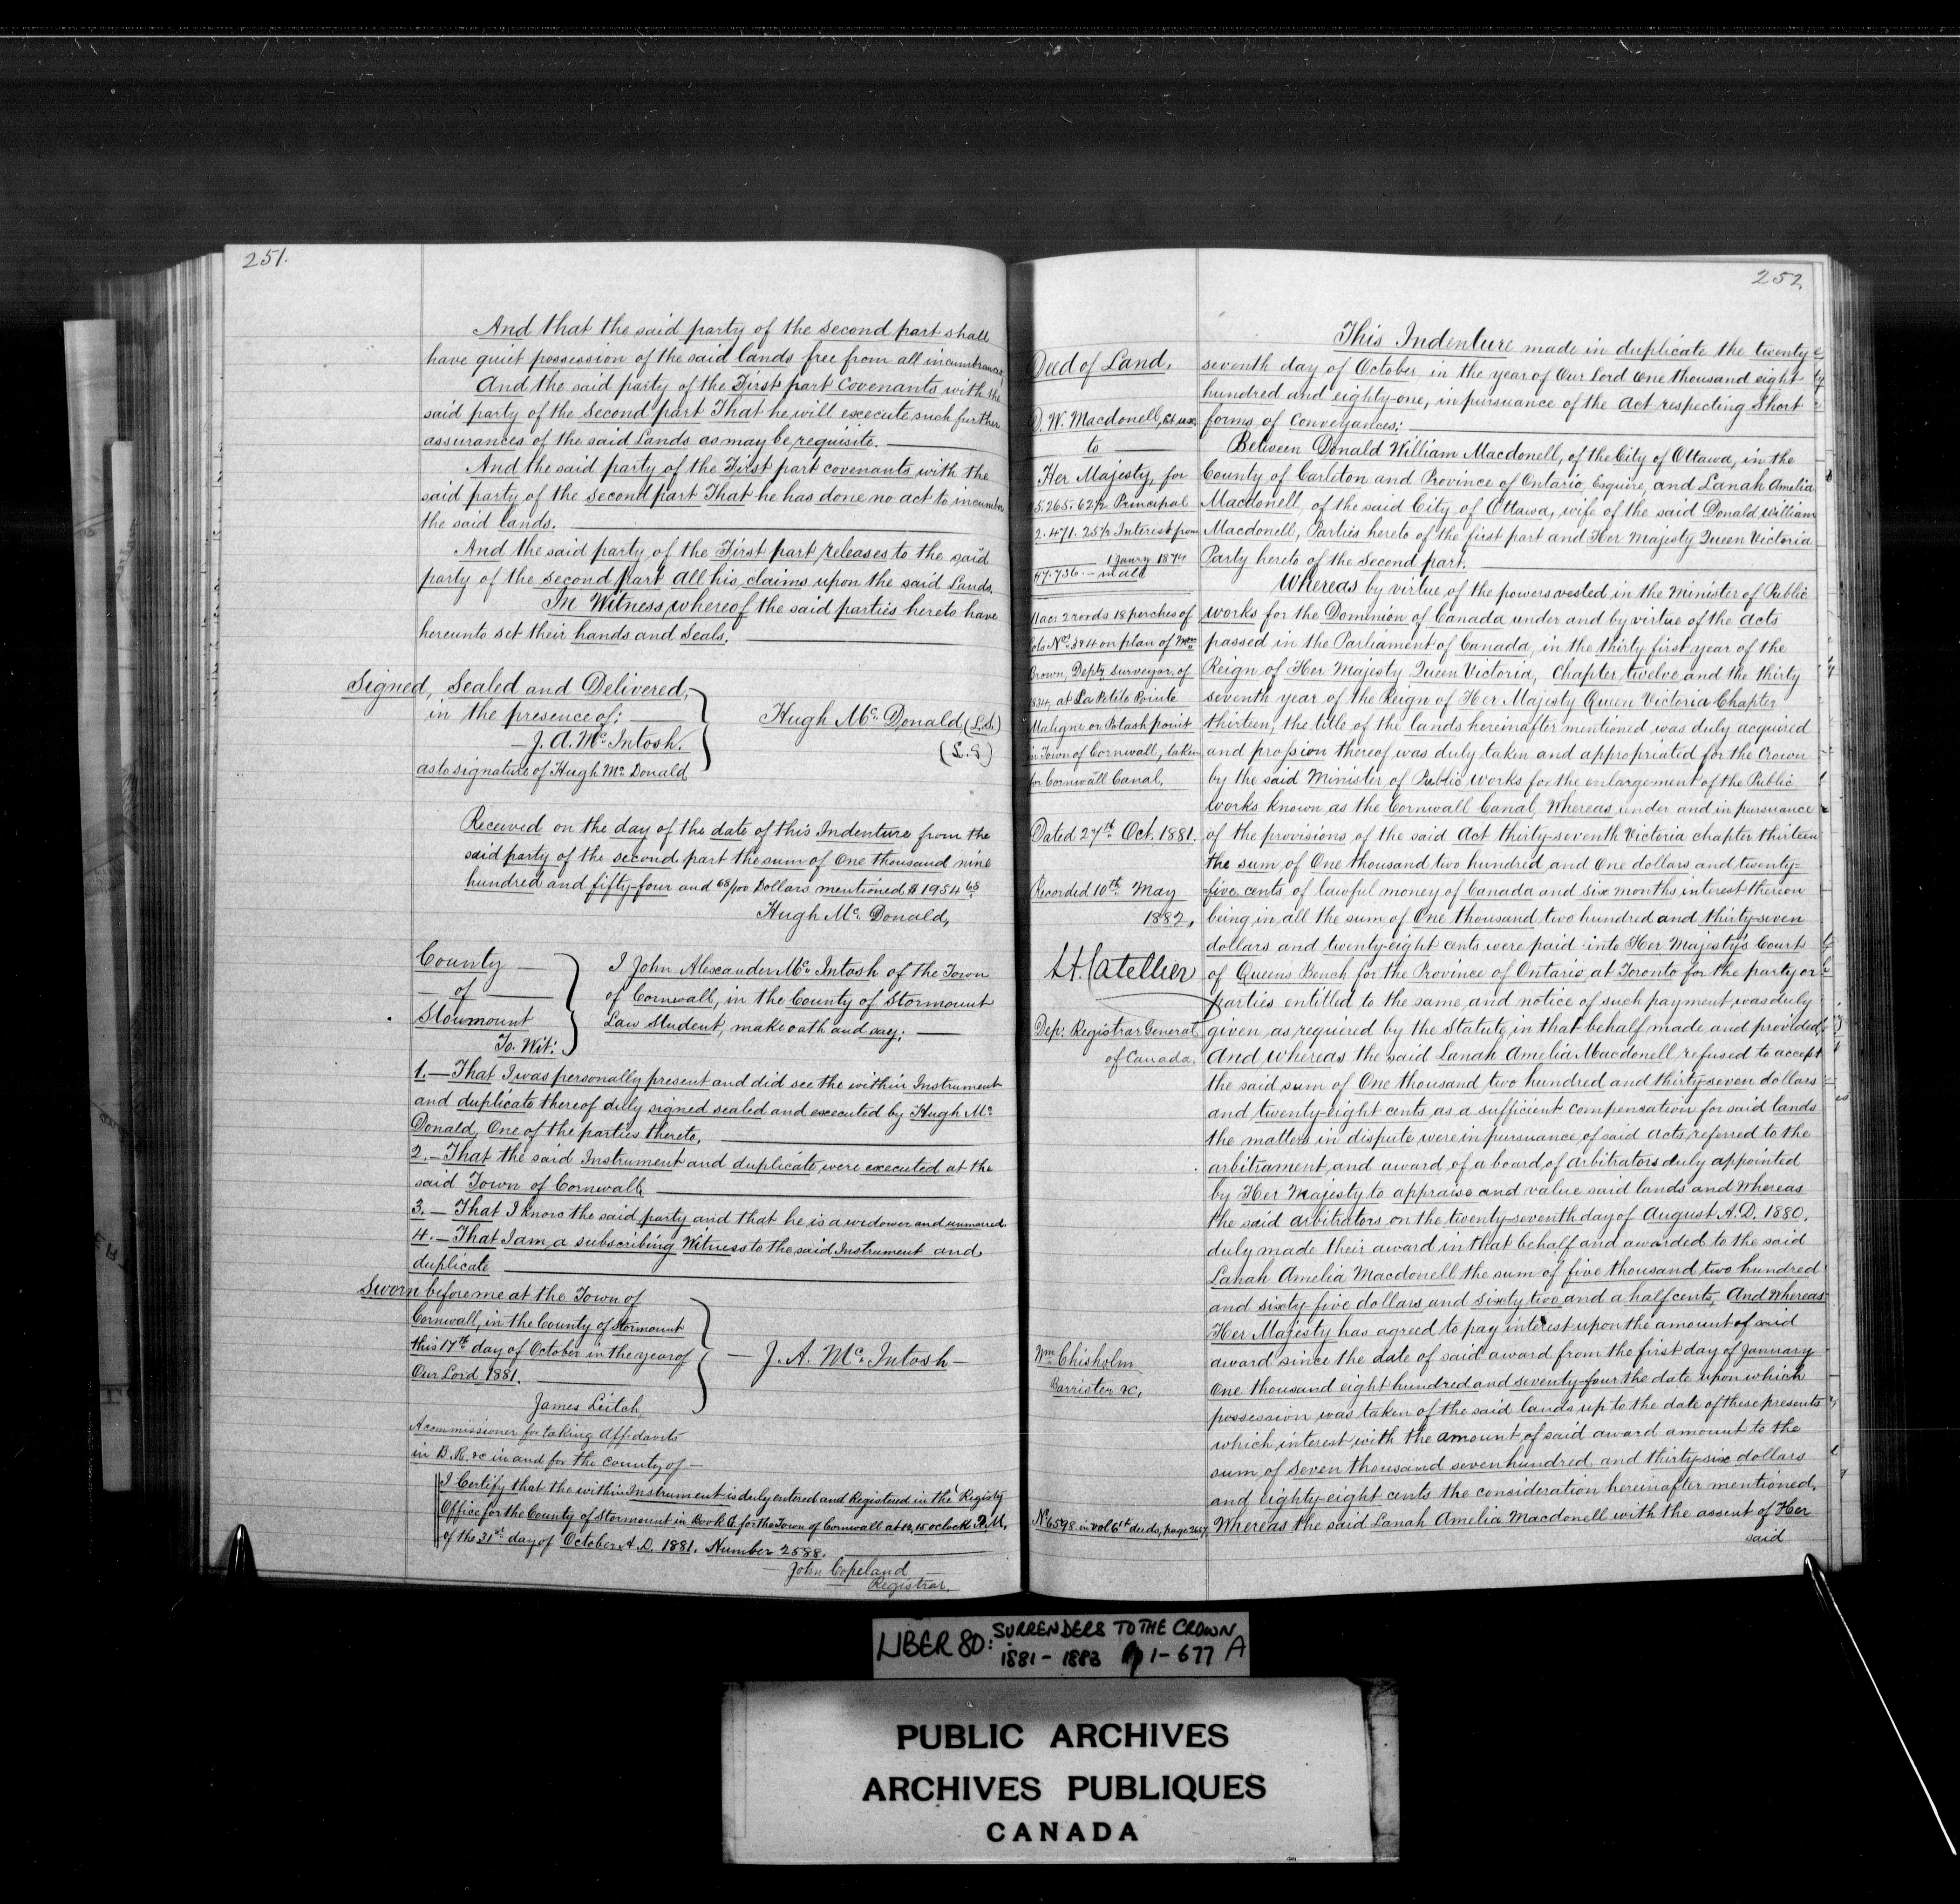 251.
And that the said party of the second part shall
have quiet possession of the said lands free from all incumbrances
And the said party of the First part covenants with the
said party of the second part That he will execute such further
assurances of the said Lands as may be requisite.
And the said party of the First part covenants with the
said party of the second part That he has done no act to incumber
the said lands.
And the said party of the First part releases to the said
party of the second part all his claims upon the said Lands.
In Witness whereof the said parties hereto have
hereunto set their hands and seals.
Signed, Sealed and Delivered,
in the presence of:
J. A. Mc. Intosh.
as to signature of Hugh Mc Donald
Hugh Mc. Donald (L.S.)
(L.S)
Received on the day of the date of this Indenture from the
said party of the second part the sum of One thousand nine
hundred and fifty-four and 68/100 Dollars mentioned $ 1954 68
Hugh Mc. Donald,
County
of
Stormount
To. Wit:
I John Alexander Mc. Intosh of the Town
of Cornwall, in the County of Stormount
Law Student, make oath and say:
1.—That I was personally present and did see the within Instrument
and duplicate thereof duly signed sealed and executed by Hugh Mc.
Donald, One of the parties thereto.
2.—That the said Instrument and duplicate were executed at the
said Town of Cornwall
3.—That I know the said party and that he is a widower and unmarried
4.—That I am a subscribing Witness to the said Instrument and
duplicate
Sworn before me at the Town of
Cornwall, in the County of Stormount
this 17th day of October in the year of
Our Lord 1881.
— J. A. Mc. Intosh —
James Leitch,
A commissioner for taking Affidavits
in B.R. &c in and for the county of —
I Certify that the within Instrument is duly entered and Registered in the Registry
Office for the County of Stormount in Book G for the Town of Cornwall at 12,15 oclock P.M,
of the 31st day of October A.D. 1881. Number 2588.
John Copeland
Registrar.
252.
Deed of Land.
D. W. Macdonell, et ux.
to
Her Majesty, for
5.265.62½ Principal
2.471.25½ Interest from
1 Janry 1874
$7.736.— in all
11 acs 2 roods 18 perches of
lots Nos. 3 & 4 on plan of
Crown Depty Surveyor, of
1834, at La Petite Pointe
Maligne or Potash point
in Town of Cornwall, taken
for Cornwall Canal.
Dated 27th Oct. 1881.
Recorded 10th May
1882,
Dep: Registrar General
of Canada.
Wm Chisholm
Barrister &c,
No 6598 in vol 6th deeds, page 2667.
This Indenture made in duplicate the twenty
seventh day of October in the year of Our Lord One thousand eight
hundred and eighty-one, in pursuance of the Act respecting Short
forms of Conveyances:
Between Donald William Macdonell, of the City of Ottawa, in the
County of Carleton and Province of Ontario, Esquire, and Lanah Amelia
Macdonell, of the said City of Ottawa, wife of the said Donald William
Macdonell, Parties hereto of the first part and Her Majesty Queen Victoria
Party hereto of the Second part.
Whereas by virtue of the powers vested in the Minister of Public
works for the Dominion of Canada under and by virtue of the Acts
passed in the Parliament of Canada, in the thirty first year of the
Reign of Her Majesty Queen Victoria, Chapter twelve and the thirty
seventh year of the Reign of Her Majesty Queen Victoria Chapter
thirteen, the title of the lands hereinafter mentioned was duly acquired
and possion thereof was duly taken and appropriated for the Crown
by the said Minister of Public Works for the enlargement of the Public
Works known as the Cornwall Canal, Whereas under and in pursuance
of the provisions of the said Act thirty-seventh Victoria chapter thirteen
the sum of One thousand two hundred and One dollars and twenty-
five cents of lawful money of Canada and six months interest thereon
being in all the sum of One thousand two hundred and thirty-seven
dollars and twenty-eight cents were paid into Her Majesty's Court
of Queens Bench for the Province of Ontario, at Toronto for the party or
parties entitled to the same and notice of such payment was duly
given as required by the Statute in that behalf made and provided,
And whereas the said Lanah Amelia Macdonell refused to accept
the said sum of One thousand two hundred and thirty-seven dollars
and twenty-eight cents as a sufficient compensation for said lands
the matters in dispute were in pursuance of said Acts referred to the
arbitrament and award of a board of Arbitrators duly appointed
by Her Majesty to appraise and value said lands and Whereas
the said arbitrators on the twenty-seventh day of August A.D. 1880,
duly made their award in that behalf and awarded to the said
Lanah Amelia Macdonell the sum of five thousand two hundred
and sixty-five dollars and sixty two and a half cents, And Whereas
Her Majesty has agreed to pay interest upon the amount of said
award since the date of said award from the first day of January
One thousand eight hundred and seventy-four the date upon which
possession was taken of the said lands up to the date of these presents
which interest with the amount of said award amount to the
sum of Seven thousand seven hundred and thirty-six dollars
and eighty-eight cents the consideration hereinafter mentioned,
Whereas the said Lanah Amelia Macdonell with the assent of Her
said
LIBER 80: SURRENDERS TO THE CROWN
1881 - 1883 pp 1 - 677 A
PUBLIC ARCHIVES
ARCHIVES PUBLIQUES
CANADA